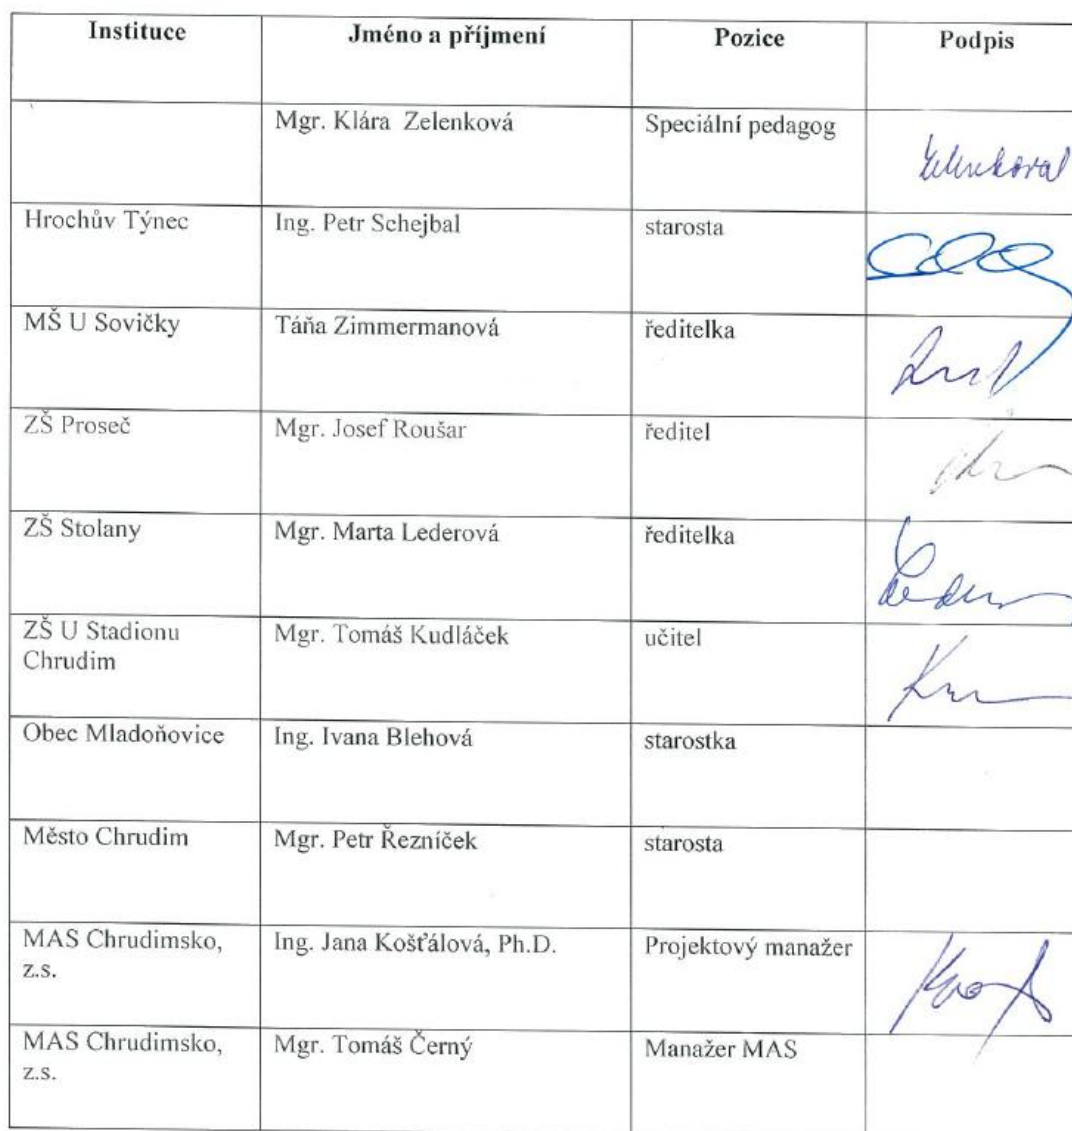 Instituce Jméno a příjmení Pozice Podpis
Mgr. Klára Zelenková Speciální pedagog Zelenková
Hrochův Týnec Ing. Petr Schejbal starosta
MŠ U Sovičky Táňa Zimmermanová ředitelka
ZŠ Proseč Mgr. Josef Roušar ředitel
ZŠ Stolany Mgr. Marta Lederová ředitelka
ZŠ U Stadionu Mgr. Tomáš Kudláček učitel
Chrudim
Obec Mladoňovice Ing. Ivana Blehová starostka
Město Chrudim Mgr. Petr Řezníček starosta
MAS Chrudimsko, Ing. Jana Košťálová, Ph.D. Projektový manažer
z.s.
MAS Chrudimsko, Mgr. Tomáš Černý Manažer MAS
z.s.